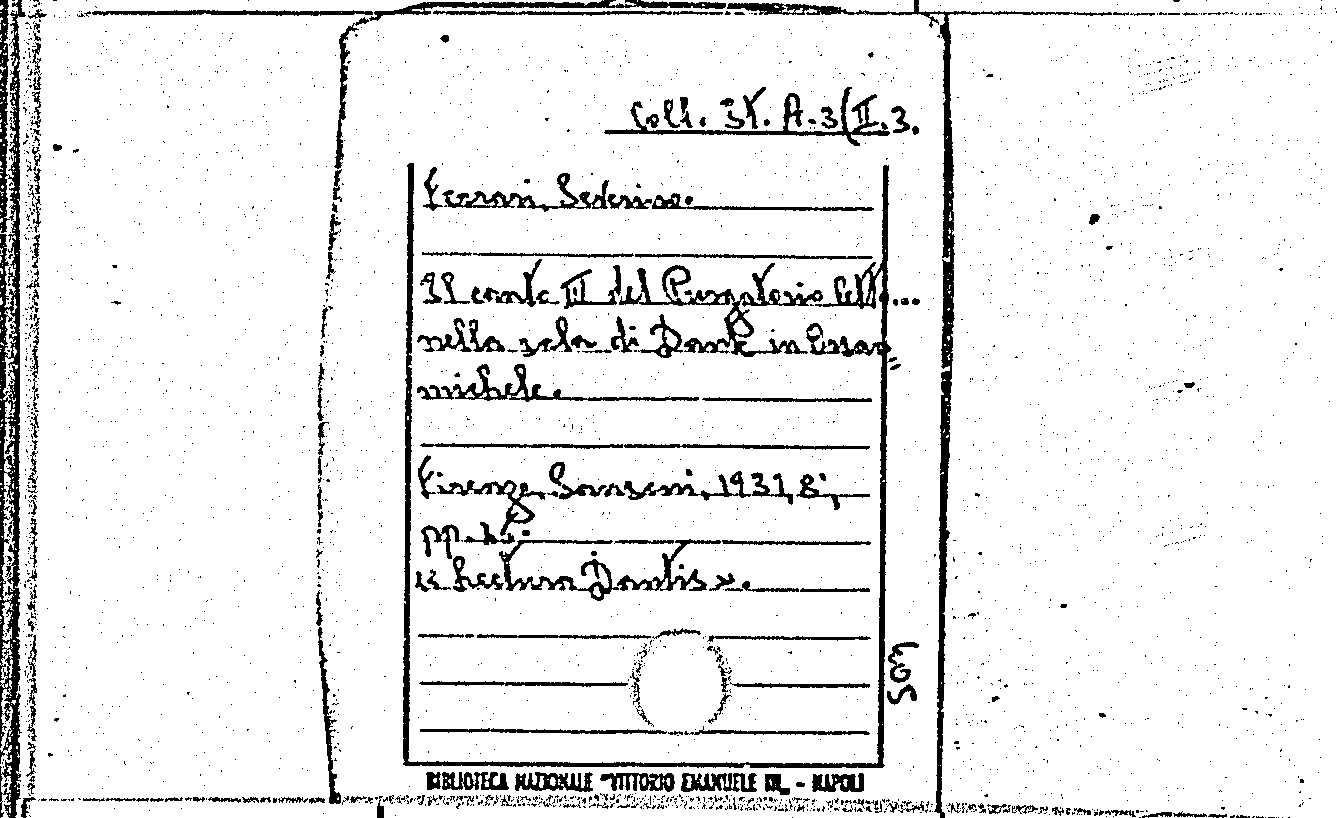 Coll. 3Y. A.3(II.3.
Ferrari, Severino.
Il canto III del Purgatorio letto...
nella sala di Dante in Orsan=
michele.
Firenze, Sansoni, 1931, 8°,
pp.
« Lectura Dantis ».
BIBLIOTECA NAZIONALE "VITTORIO EMANUELE III„ - NAPOLI